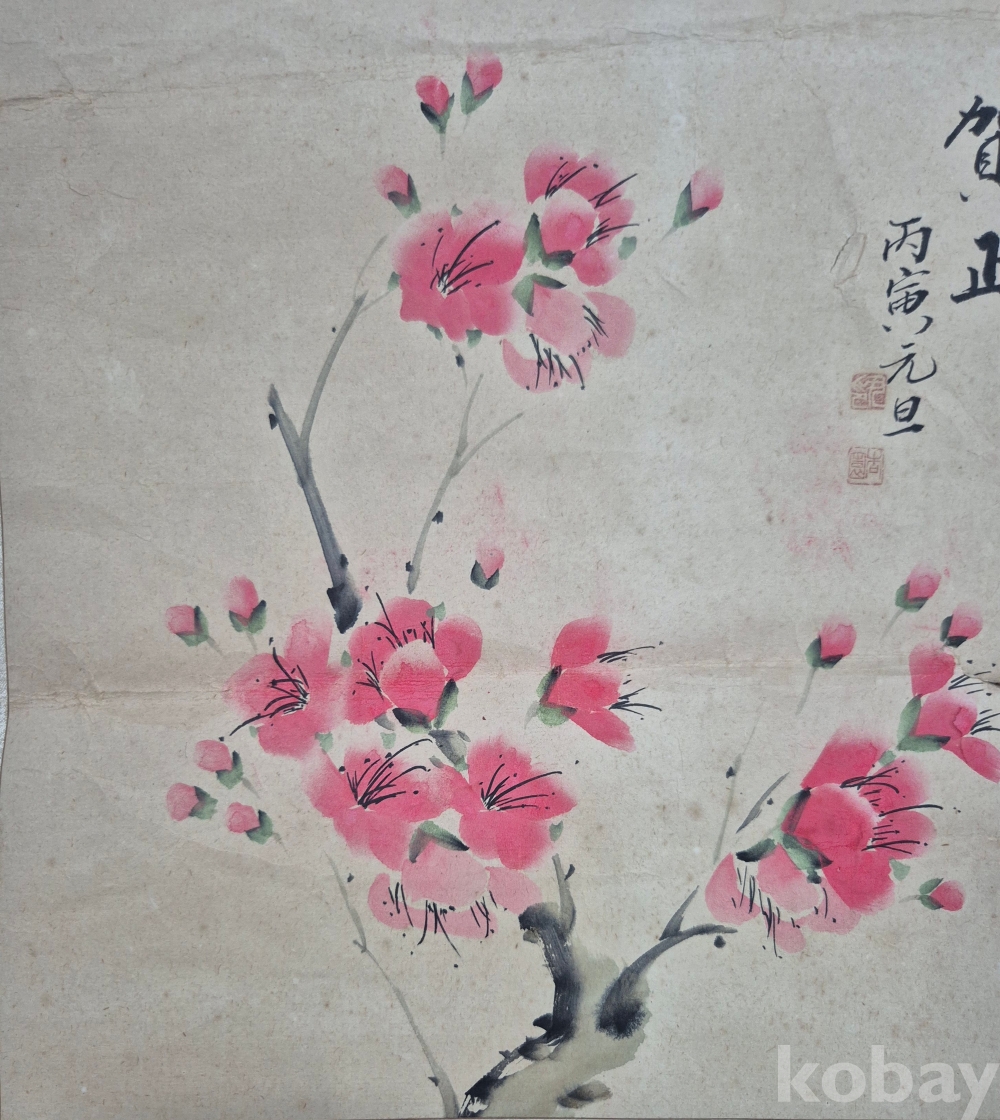 賀正
丙寅元旦
kobay